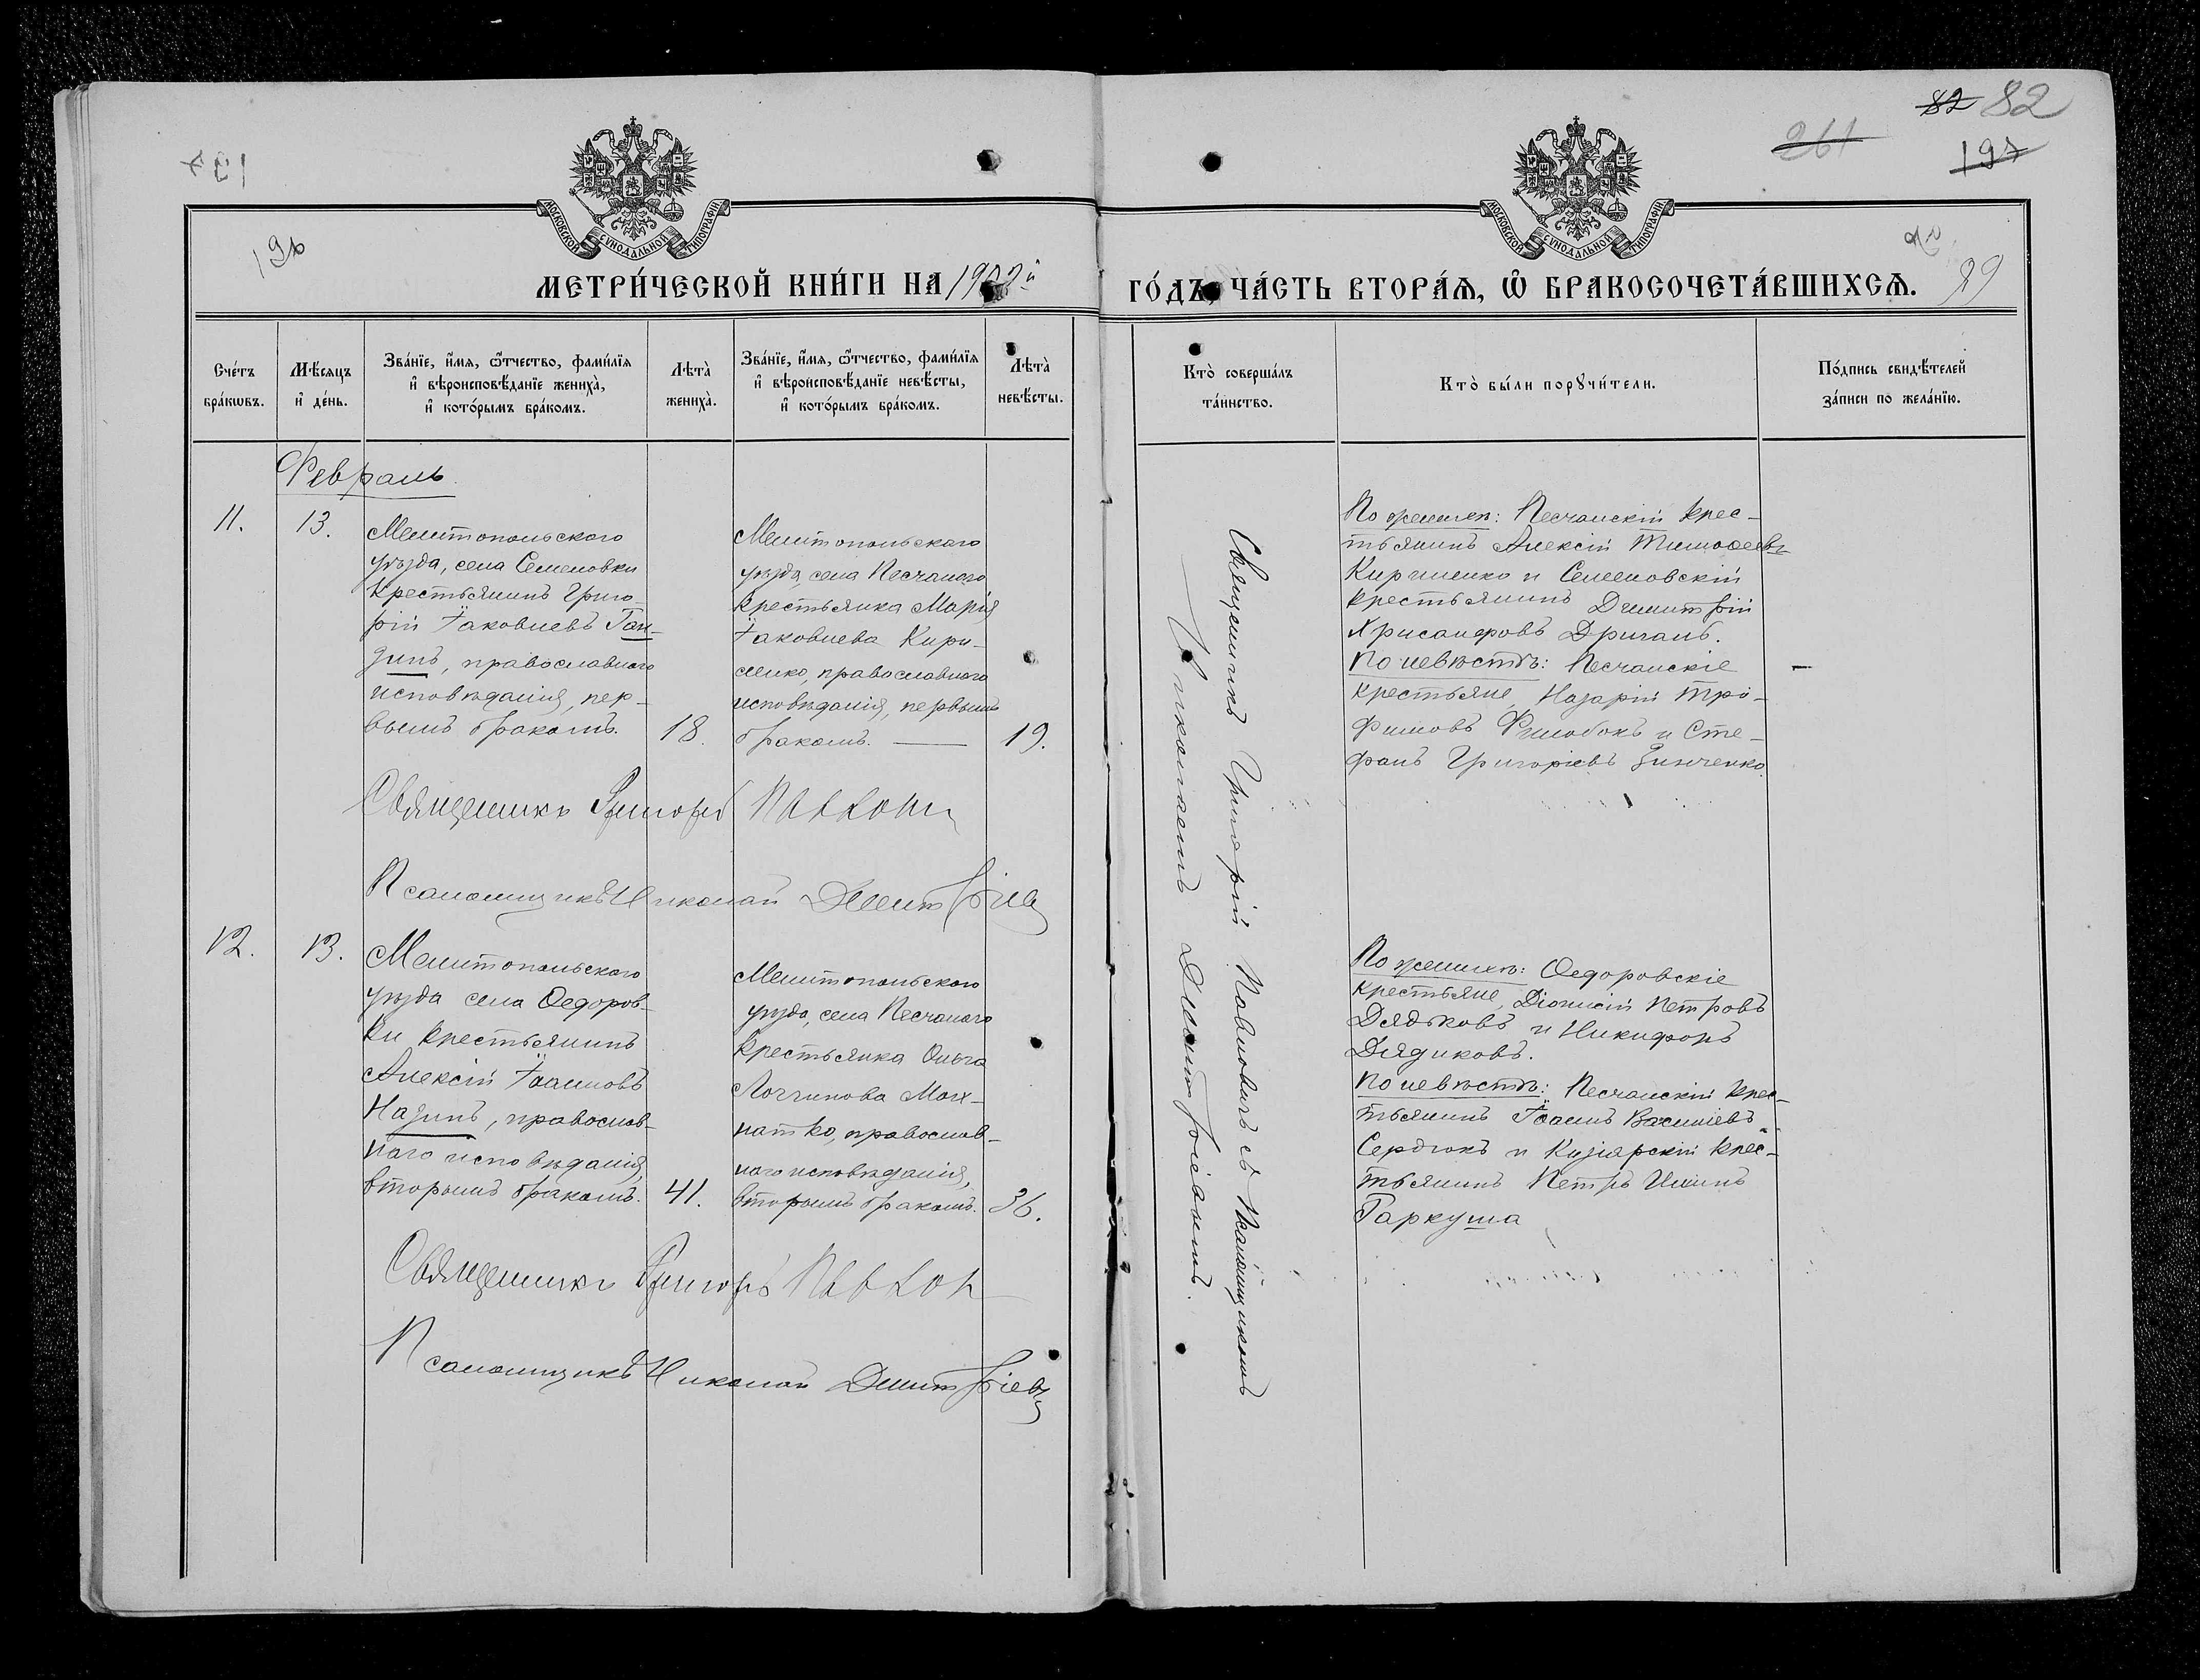 82 82
261
197
29
МОСКОВСКОЙ СѴНОДАЛЬНОЙ ТИПОГРАФІИ
МОСКОВСКОЙ СѴНОДАЛЬНОЙ ТИПОГРАФІИ
МЕТРИ́ЧЕСКОЙ КНИ́ГИ НА 1902й ГО́ДЪ, ЧА́СТЬ ВТОРА́Ѧ, Ѡ҆ БРАКОСОЧЕТА́ВШИХСѦ.
Сче́тъ бра́кѡвъ.
Мѣ́сѧцъ и҆ де́нь.
Зва́нїе, и҆́мѧ, ѻ҆́тчество, фами́лїѧ и҆ вѣроисповѣ́данїе жениха̀, и҆ кото́рымъ бра́комъ.
Лѣта̀ жениха̀.
Зва́нїе, и҆́мѧ, ѻ҆́тчество, фами́лїѧ и҆ вѣроисповѣ́данїе невѣ́сты, и҆ кото́рымъ бра́комъ.
Лѣта̀ невѣ́сты.
Кто̀ соверша́лъ та́инство.
Кто̀ бы́ли порꙋчи́тели.
По́дпись свидѣ́телей за́писи по жела́нїю.
Февраль
11.
13.
Мелитопольскаго
уѣзда, села Семеновки
крестьянинъ Григо-
рій Іаковлевъ Ган-
динъ, православнаго
исповѣданія, пер-
вымъ бракомъ.
18.
Мелитопольскаго
уѣзда, села Песчанаго
крестьянка Марія
Іаковлева Кири-
ленко, православнаго
исповѣданія, первымъ
бракомъ.
19.
Священникъ Григорій Павловичъ съ Псаломщикомъ
Николаемъ Димитріевымъ.
По женихѣ: Песчанскій крес-
тьянинъ Алексій Тимоѳеевъ
Кириленко и Семеновскій
крестьянинъ Димитрій
Хрисанфовъ Дриганъ.
По невѣстѣ: Песчанскіе
крестьяне, Назарій Тро-
фимовъ и Сте-
фанъ Григоріевъ Зинченко.
Священникъ Григорій
Псаломщикъ Николай Димитріевъ
12.
13.
Мелитопольскаго
уѣзда села Ѳедоров-
ки крестьянинъ
Алексій Іоанновъ
Назинъ, православ-
наго исповѣданія,
вторымъ бракомъ.
41.
Мелитопольскаго
уѣзда, села Песчанаго
крестьянка Ольга
Логгинова Мох-
натко, православ-
наго исповѣданія,
вторымъ бракомъ.
36.
По женихѣ: Ѳедоровскіе
крестьяне, Діонисій Петровъ
Дядьковъ и Никифоръ
Дядиковъ.
По невѣстѣ: Песчанскій крес-
тьянинъ Іоаннъ Василіевъ
Сердюкъ и Кизіярскій крес-
тьянинъ Петръ Ильинъ
Гаркуша
Священникъ Григорій
Псаломщикъ Николай Димитріевъ